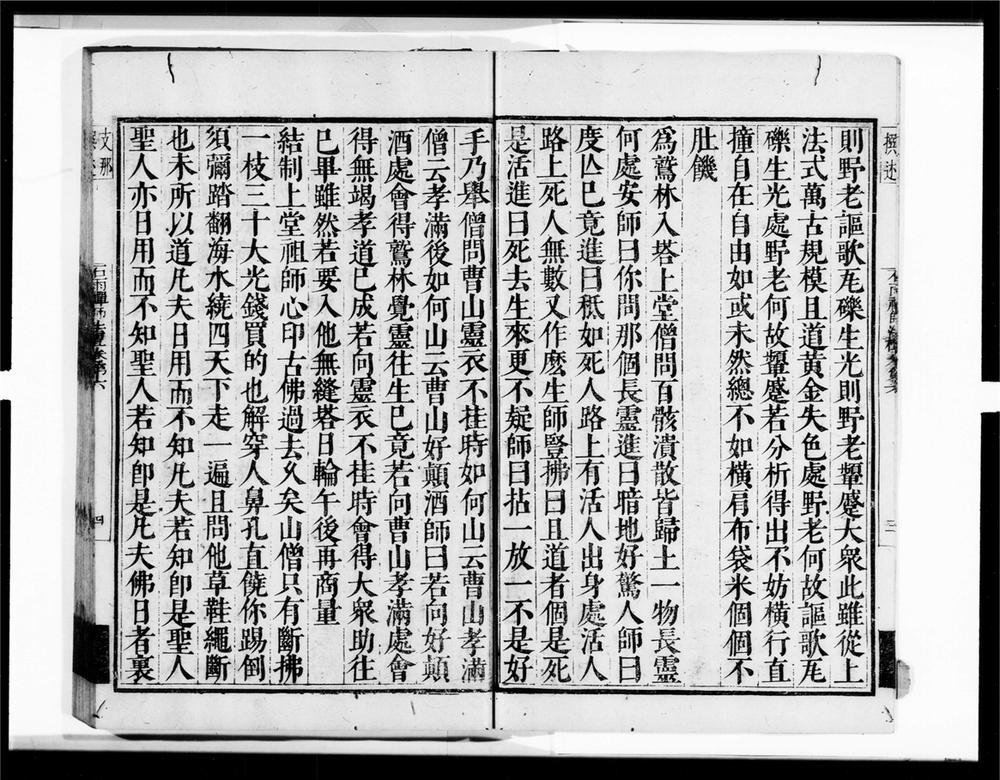 則野老謳歌瓦礫生光則野老顰蹙大衆此雖從上
法式萬古規模且道黃金失色處野老何故謳歌瓦
礫生光處野老何故顰蹙若分析得出不妨橫行直
撞自在自由如或未然總不如橫肩布袋米個個不
肚饑
爲鷲林入塔上堂僧問百骸潰散皆歸土一物長靈
何處安師曰你問那個長靈進曰暗地好驚人師曰
度亾已竟進曰秪如死人路上有活人出身處活人
路上死人無數又作麼生師豎拂曰且道者個是死
是活進曰死去生來更不疑師曰拈一放一不是好
手乃舉僧問曹山靈衣不挂時如何山云曹山孝滿
僧云孝滿後如何山云曹山好顛酒師曰若向好顛
酒處會得鷲林覺靈往生已竟若向曹山孝滿處會
得無竭孝道已成若向靈衣不挂時會得大衆助往
已畢雖然若要入他無縫塔日輪午後再商量
結制上堂祖師心印古佛過去久矣山僧只有斷拂
一枝三十大光錢買的也解穿人鼻孔直饒你踢倒
須彌踏翻海水繞四天下走一遍且問他草鞋繩斷
也未所以道凡夫日用而不知凡夫若知卽是聖人
聖人亦日用而不知聖人若知卽是凡夫佛日者裏
撰述
三
支那
撰述
石雨禪師法檀卷第六
四